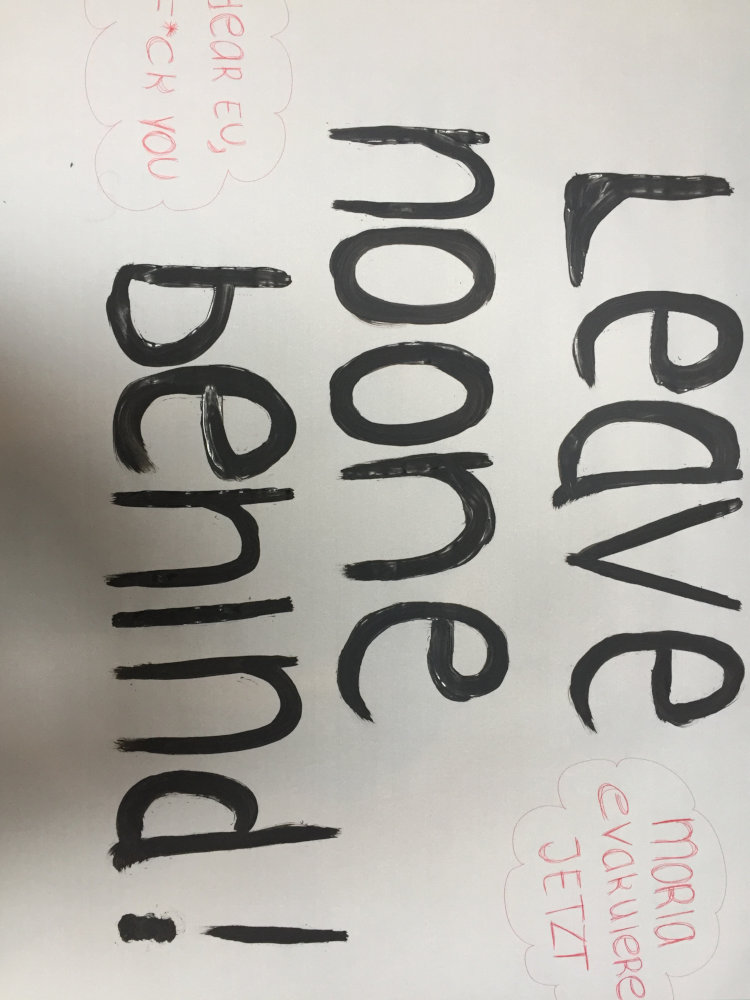 Leave
noone
behind!
MORIA
evakuiere
JETZT
dear EU,
F*CK YOU